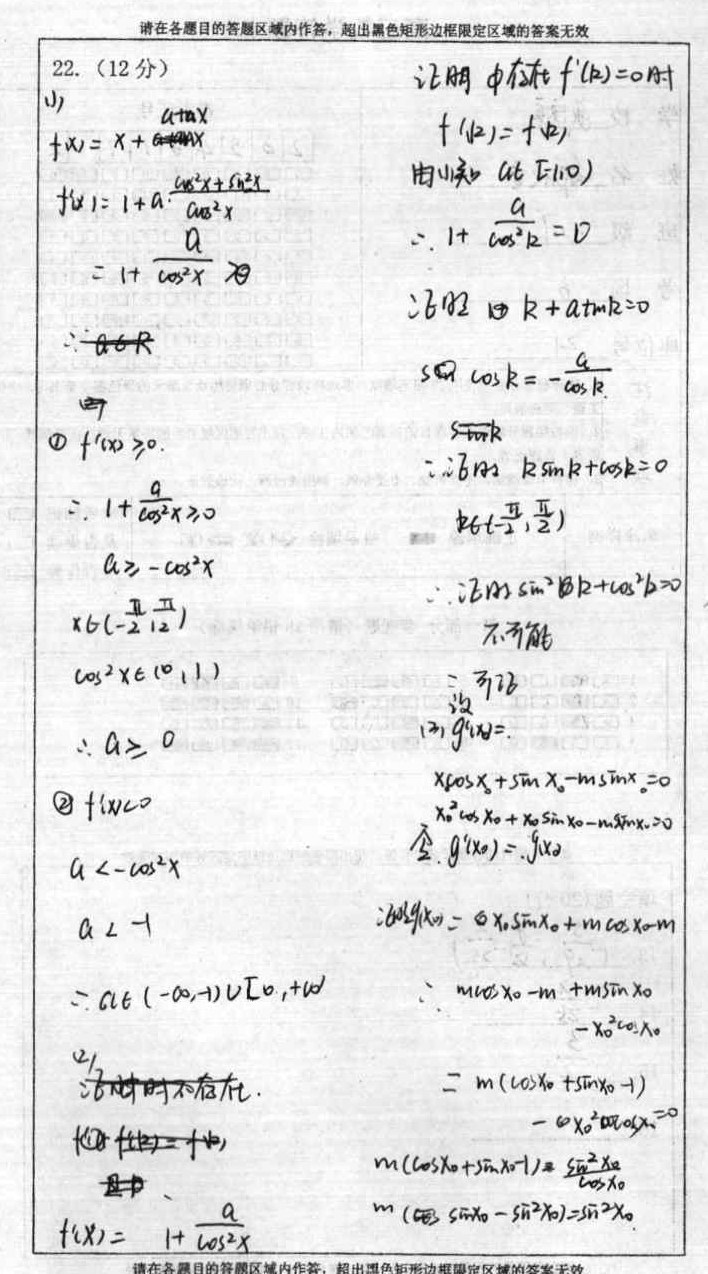 请在各题目的答题区域内作答，超出黑色矩形边框限定区域的答案无效
22.（12分）
(1)
f(x) = x + atanx
f'(x) = 1 + a·\frac{cos²x + sin²x}{cos²x}
= 1 + \frac{a}{cos²x}
∴ a∈R
① f'(x) ≥ 0.
∴ 1 + \frac{a}{cos²x} ≥ 0
a ≥ -cos²x
x∈(-\frac{π}{2}, \frac{π}{2})
cos²x ∈ (0, 1)
∴ a ≥ 0
② f'(x) < 0
a < -cos²x
a < -1
∴ a∈(-∞, -1)∪[0, +∞)
(2)
f'(x) = 1 + \frac{a}{cos²x}
证明 中存在 f'(k) = 0 时
f'(k) = f(k)
由(1)知 a∈[-1,0)
∴ 1 + \frac{a}{cos²k} = 0
证明 k + atank = 0
cosk = -\frac{a}{cosk}
∴ 证明 ksink + cosk = 0
k∈(-\frac{π}{2}, \frac{π}{2})
∴ 证明 sin²k + cos²k = 0
不可能
∴ 可证
设
(3) g'(x) =
x₀cosx₀ + sinx₀ - msinx₀ = 0
x₀²cosx₀ + x₀sinx₀ - msinx₀ = 0
令 g'(x₀) = g(x₀)
g(x₀) = x₀sinx₀ + mcosx₀ - m
∴ mcosx₀ - m + msinx₀
- x₀²cosx₀
= m(cosx₀ + sinx₀ - 1)
- x₀²cosx₀ = 0
m(cosx₀ + sinx₀ - 1) = \frac{sin²x₀}{cosx₀}
m(sinx₀ - sin²x₀) = sin²x₀
请在各题目的答题区域内作答，超出黑色矩形边框限定区域的答案无效